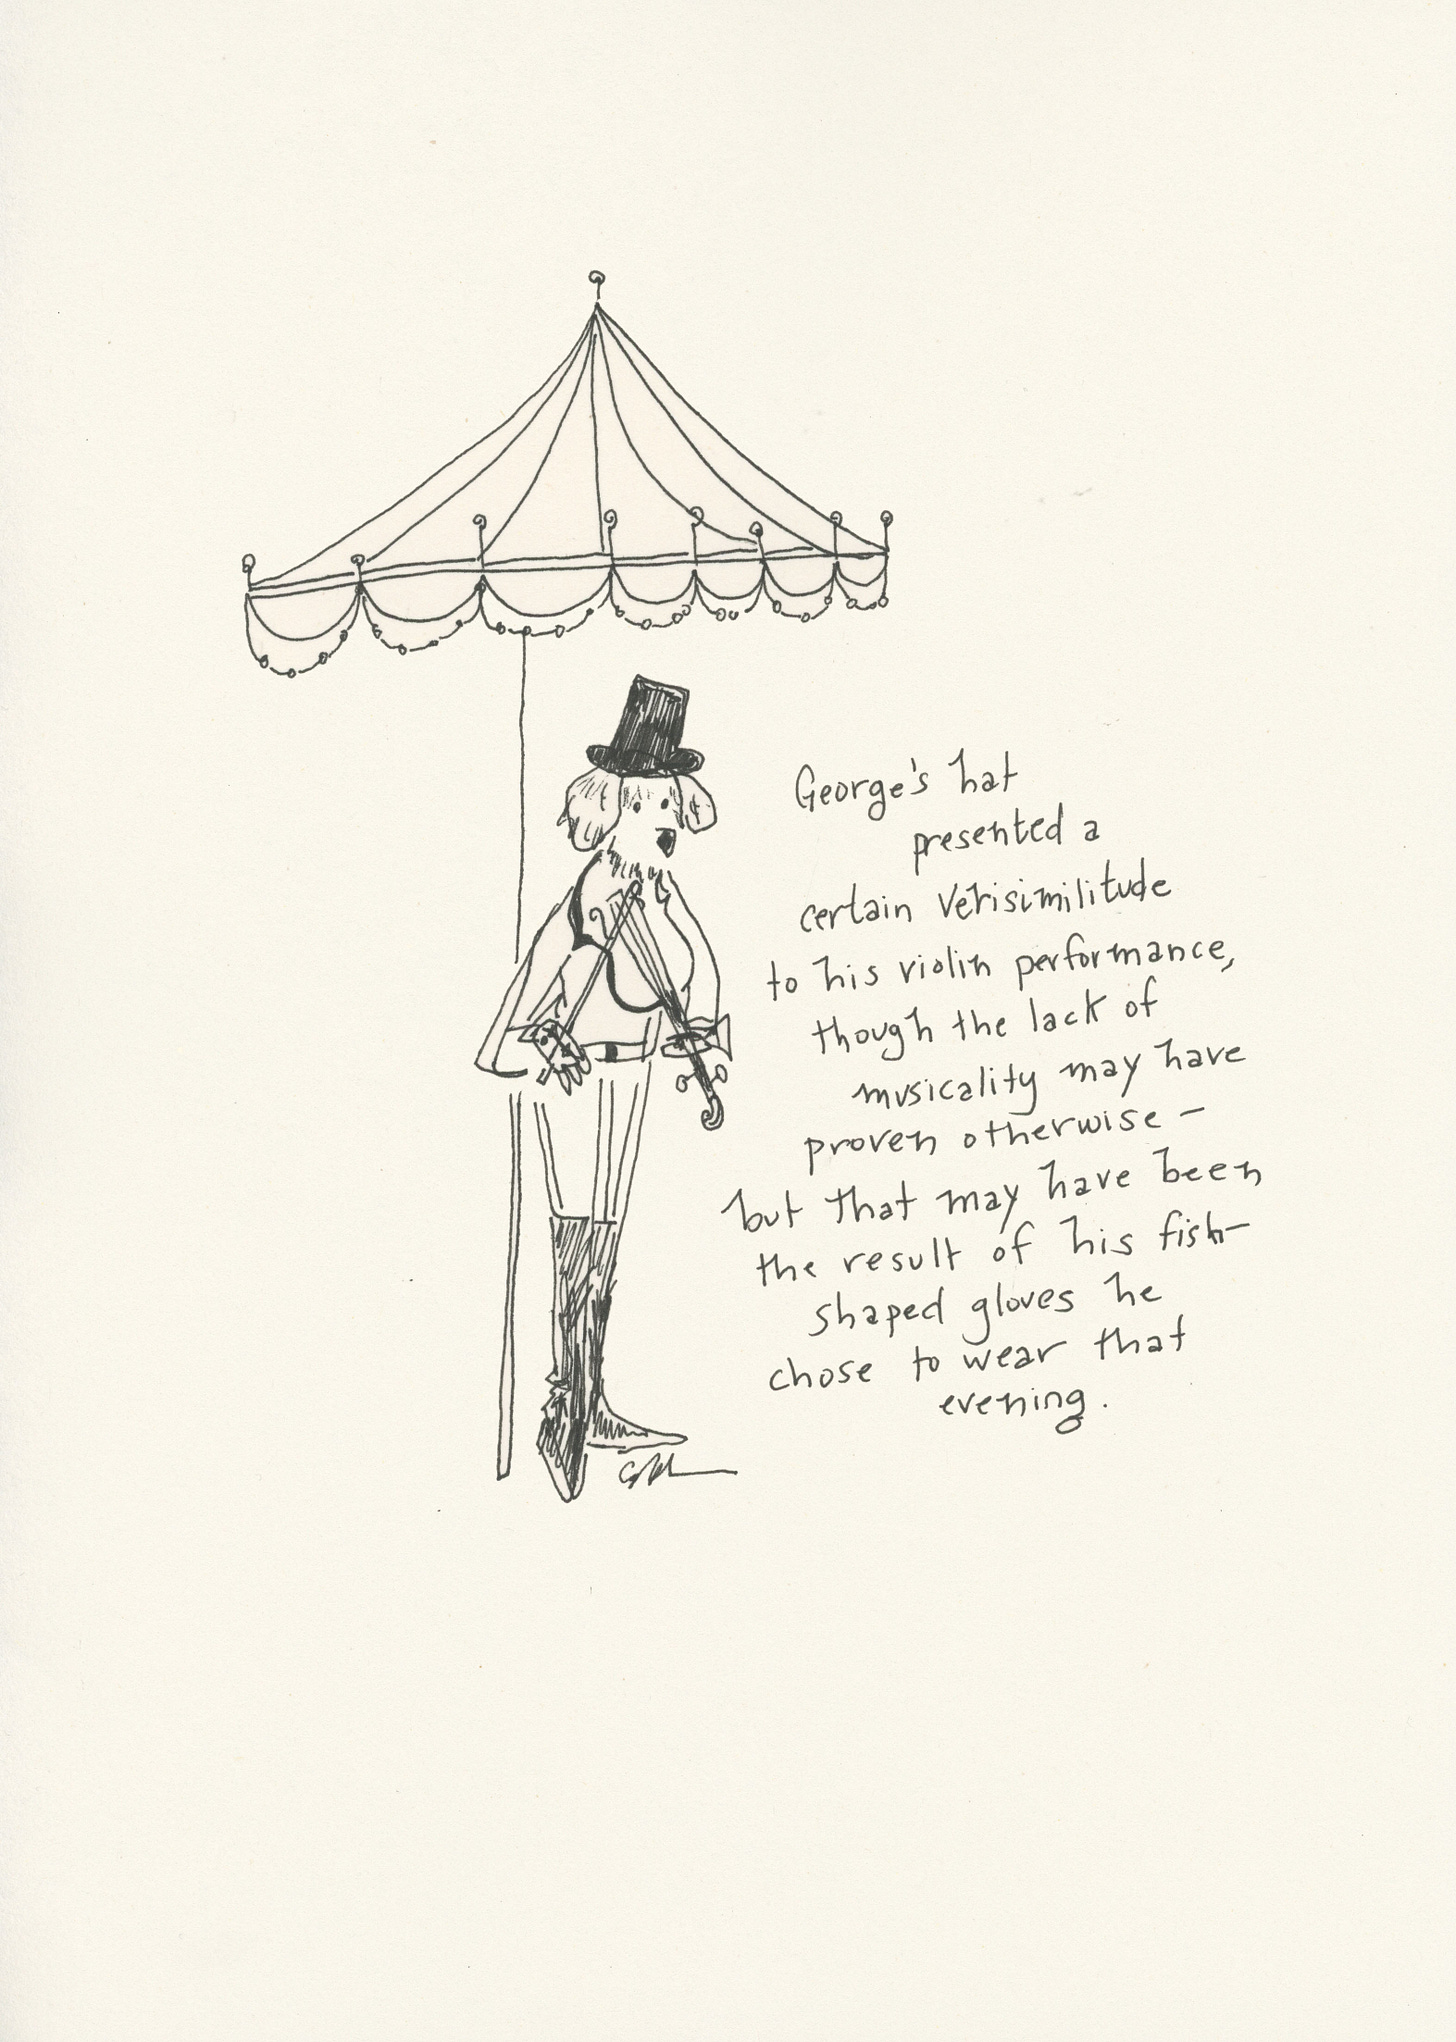 George's hat
presented a
certain verisimilitude
to his violin performance,
though the lack of
musicality may have
proven otherwise –
but that may have been
the result of his fish–
shaped gloves he
chose to wear that
evening.